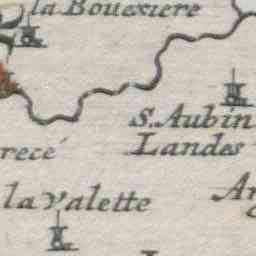 la Bouexiere
S. Aubin
Landes
recé
la Valette